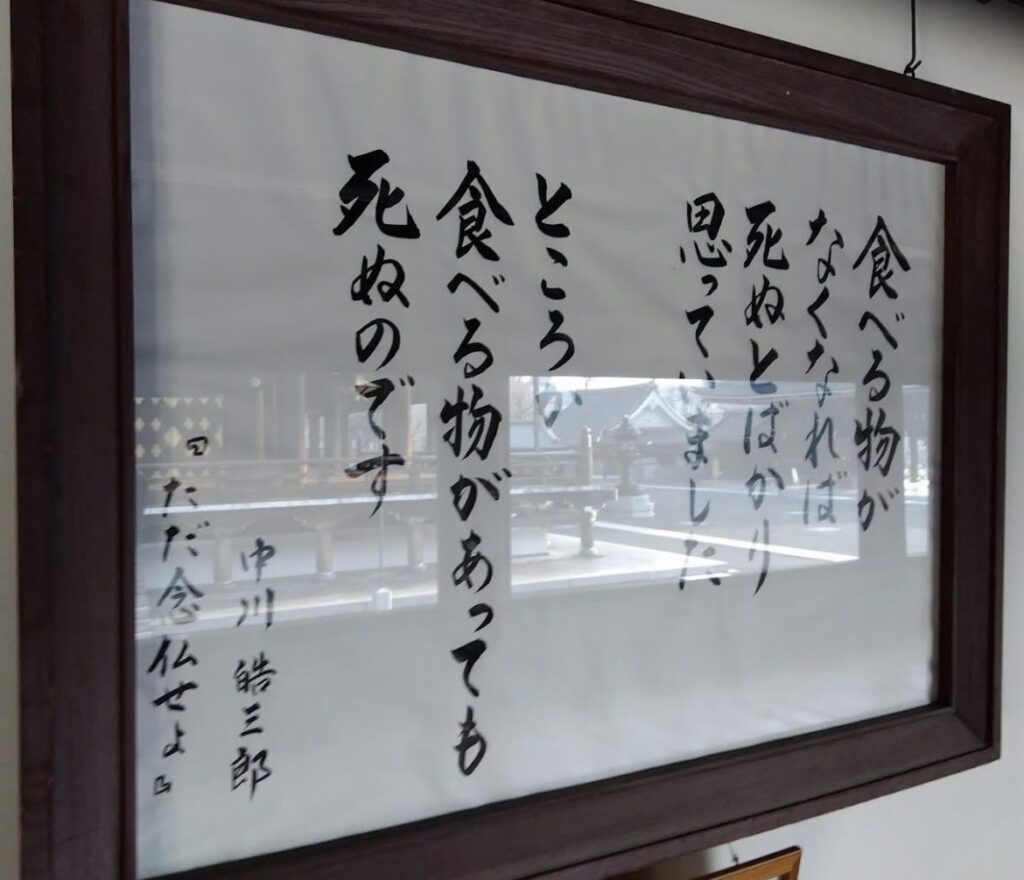 食べる物が
なくなれば
死ぬとばかり
思っていました
ところが
食べる物があっても
死ぬのです
中川皓三郎
『ただ念仏せよ』